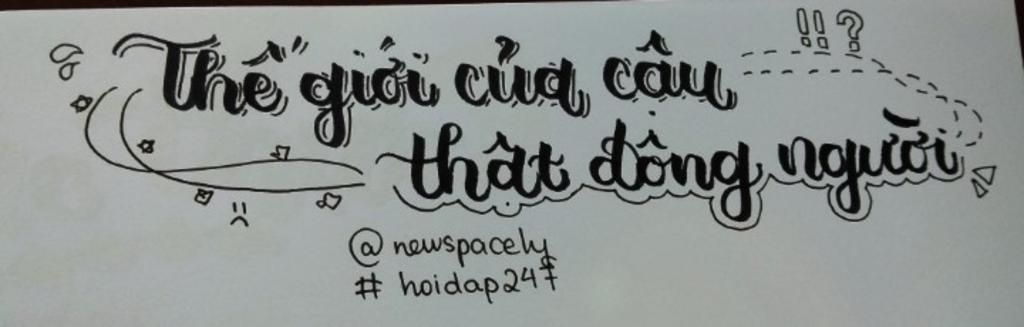 Thế giới của cậu !! ?
thật đông người
@ newspacely
# hoidap247